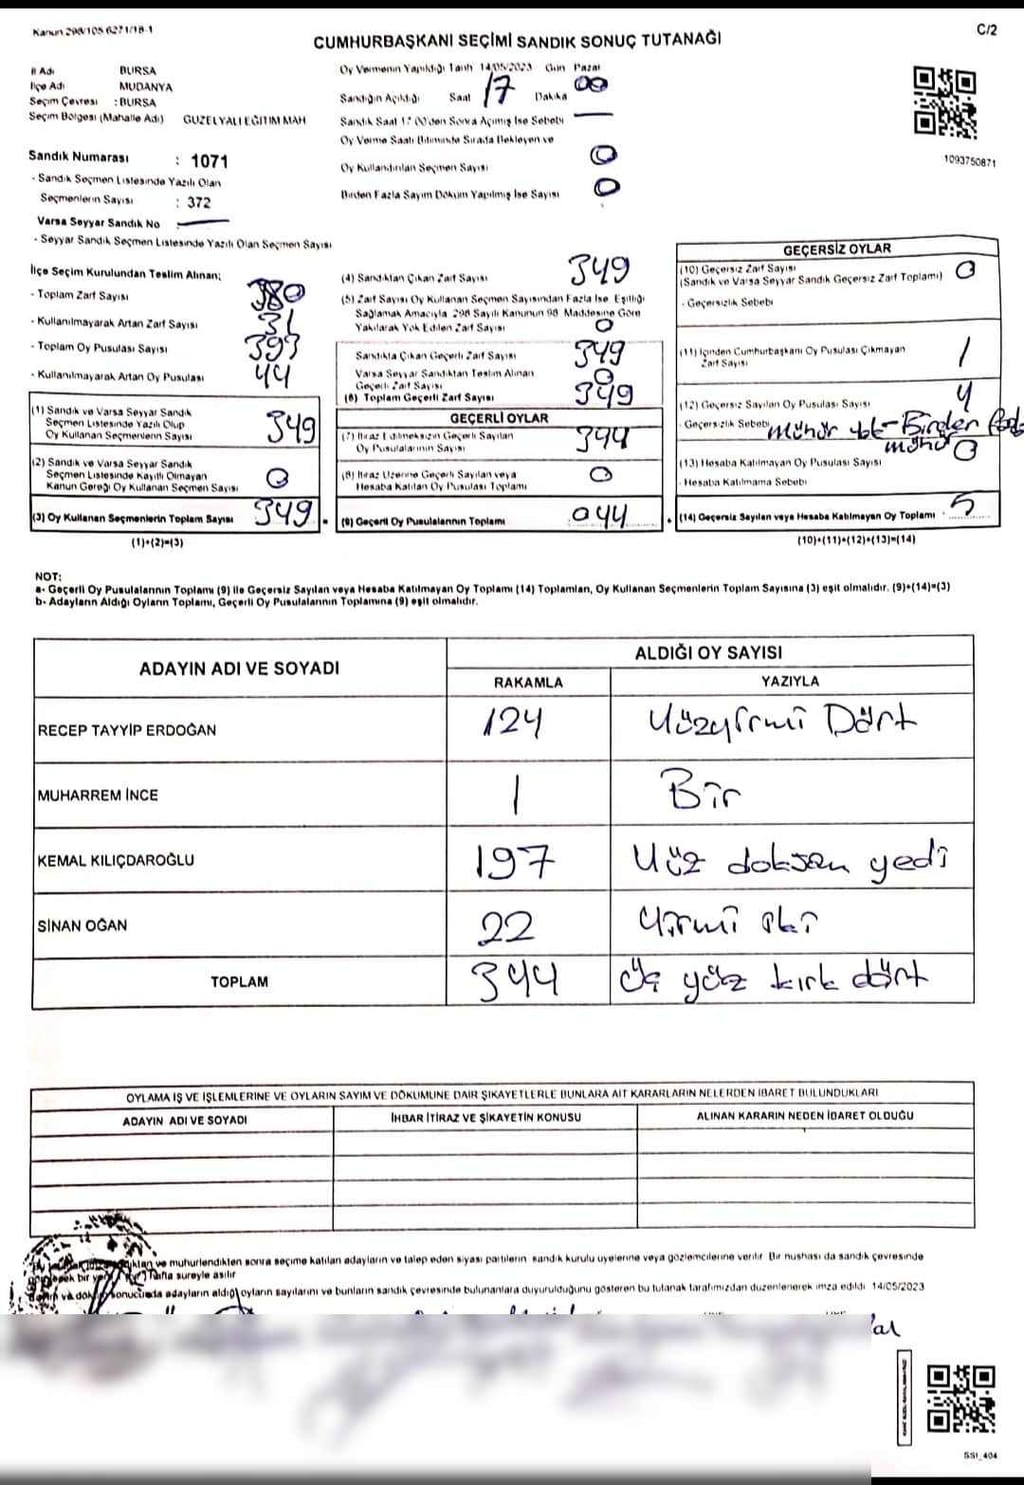 Kanun 298/105 6271/18-1
C/2
CUMHURBAŞKANI SEÇİMİ SANDIK SONUÇ TUTANAĞI
İl Adı BURSA
İlçe Adı MUDANYA
Seçim Çevresi : BURSA
Seçim Bölgesi (Mahalle Adı) GÜZELYALI EĞİTİM MAH
Sandık Numarası : 1071
- Sandık Seçmen Listesinde Yazılı Olan
Seçmenlerin Sayısı : 372
Varsa Seyyar Sandık No
- Seyyar Sandık Seçmen Listesinde Yazılı Olan Seçmen Sayısı
Oy Vermenin Yapıldığı Tarih 14/05/2023 Gün Pazar
Sandığın Açıldığı Saat 17 Dakika 00
Sandık Saat 17 00'den Sonra Açılmış İse Sebebi
Oy Verme Saati Bitiminde Sırada Bekleyen ve
Oy Kullandırılan Seçmen Sayısı 0
Birden Fazla Sayım Döküm Yapılmış İse Sayısı 0
1093750871
İlçe Seçim Kurulundan Teslim Alınan;
- Toplam Zarf Sayısı 380
- Kullanılmayarak Artan Zarf Sayısı 31
- Toplam Oy Pusulası Sayısı 393
- Kullanılmayarak Artan Oy Pusulası 44
(1) Sandık ve Varsa Seyyar Sandık
Seçmen Listesinde Yazılı Olup
Oy Kullanan Seçmenlerin Sayısı 349
(2) Sandık ve Varsa Seyyar Sandık
Seçmen Listesinde Kayıtlı Olmayan
Kanun Gereği Oy Kullanan Seçmen Sayısı 0
(3) Oy Kullanan Seçmenlerin Toplam Sayısı 349
(1)+(2)=(3)
(4) Sandıktan Çıkan Zarf Sayısı 349
(5) Zarf Sayısı Oy Kullanan Seçmen Sayısından Fazla İse, Eşitliği
Sağlamak Amacıyla 298 Sayılı Kanunun 98 Maddesine Göre
Yakılarak Yok Edilen Zarf Sayısı 0
Sandıkta Çıkan Geçerli Zarf Sayısı 349
Varsa Seyyar Sandıktan Teslim Alınan
Geçerli Zarf Sayısı 0
(6) Toplam Geçerli Zarf Sayısı 349
GEÇERLİ OYLAR
(7) İtiraz Edilmeksizin Geçerli Sayılan
Oy Pusulalarının Sayısı 344
(8) İtiraz Üzerine Geçerli Sayılan veya
Hesaba Katılan Oy Pusulası Toplamı 0
(9) Geçerli Oy Pusulalarının Toplamı 044
GEÇERSİZ OYLAR
(10) Geçersiz Zarf Sayısı
(Sandık ve Varsa Seyyar Sandık Geçersiz Zarf Toplamı) 0
- Geçersizlik Sebebi
(11) İçinden Cumhurbaşkanı Oy Pusulası Çıkmayan
Zarf Sayısı 1
(12) Geçersiz Sayılan Oy Pusulası Sayısı 4
- Geçersizlik Sebebi mühür yok - Birden fazla
mühür
(13) Hesaba Katılmayan Oy Pusulası Sayısı 0
- Hesaba Katılmama Sebebi
(14) Geçersiz Sayılan veya Hesaba Katılmayan Oy Toplamı 5
(10)+(11)+(12)+(13)=(14)
NOT:
a- Geçerli Oy Pusulalarının Toplamı (9) ile Geçersiz Sayılan veya Hesaba Katılmayan Oy Toplamı (14) Toplamları, Oy Kullanan Seçmenlerin Toplam Sayısına (3) eşit olmalıdır. (9)+(14)=(3)
b- Adayların Aldığı Oyların Toplamı, Geçerli Oy Pusulalarının Toplamına (9) eşit olmalıdır.
ADAYIN ADI VE SOYADI
ALDIĞI OY SAYISI
RAKAMLA YAZIYLA
RECEP TAYYİP ERDOĞAN 124 Yüzyirmi Dört
MUHARREM İNCE 1 Bir
KEMAL KILIÇDAROĞLU 197 Yüz doksan yedi
SİNAN OĞAN 22 Yirmi iki
TOPLAM 344 Üç yüz kırk dört
OYLAMA İŞ VE İŞLEMLERİNE VE OYLARIN SAYIM VE DÖKÜMÜNE DAİR ŞİKAYETLERLE BUNLARA AİT KARARLARIN NELERDEN İBARET BULUNDUKLARI
ADAYIN ADI VE SOYADI İHBAR İTİRAZ VE ŞİKAYETİN KONUSU ALINAN KARARIN NEDEN İBARET OLDUĞU
ve mühürlendikten sonra seçime katılan adayların ve talep eden siyasi partilerin sandık kurulu üyelerine veya gözlemcilerine verilir. Bir nüshası da sandık çevresinde
bir hafta süreyle asılır
sonucunda adayların aldığı oyların sayılarını ve bunların sandık çevresinde bulunanlara duyurulduğunu gösteren bu tutanak tarafımızdan düzenlenerek imza edildi 14/05/2023
SSI_404